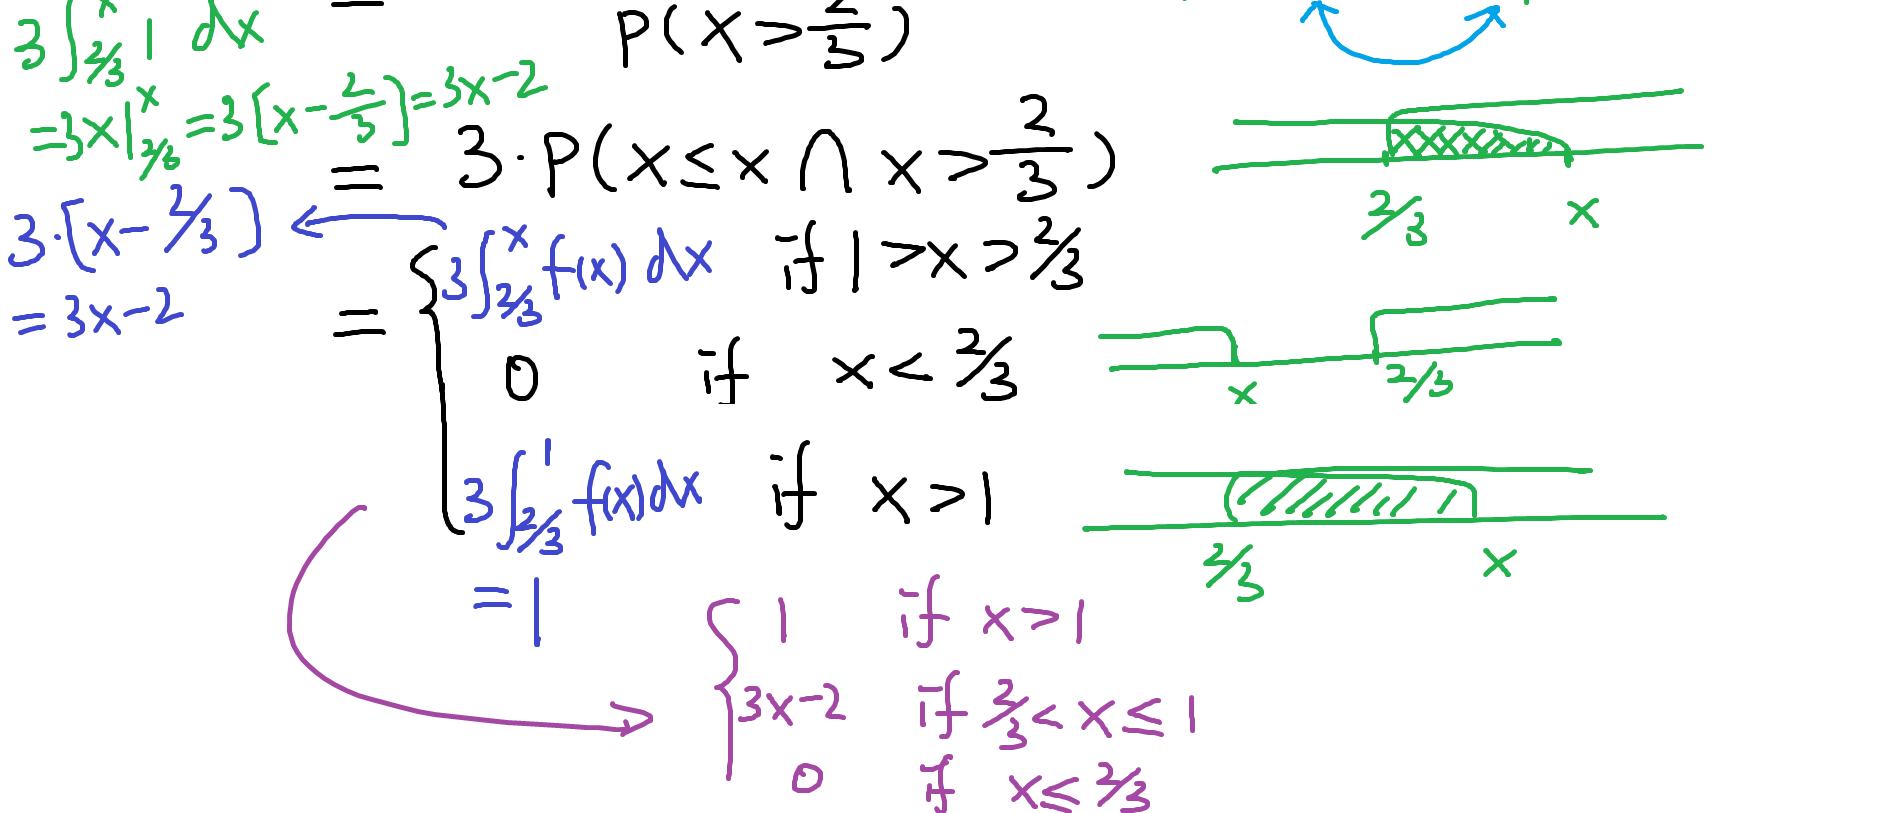 3∫_{2/3}^{x} 1 dx
=
P(X>2/3)
=3x|_{2/3}^{x} =3[x-2/3]=3x-2
= 3·P(X≤x ∩ x>2/3)
2/3 x
3·[x-2/3]
=3x-2
=
3∫_{2/3}^{x} f(x) dx if 1>x>2/3
0 if x<2/3
x 2/3
3∫_{2/3}^{1} f(x)dx if x>1
=1
2/3 x
1 if x>1
3x-2 if 2/3<x≤1
0 if x≤2/3